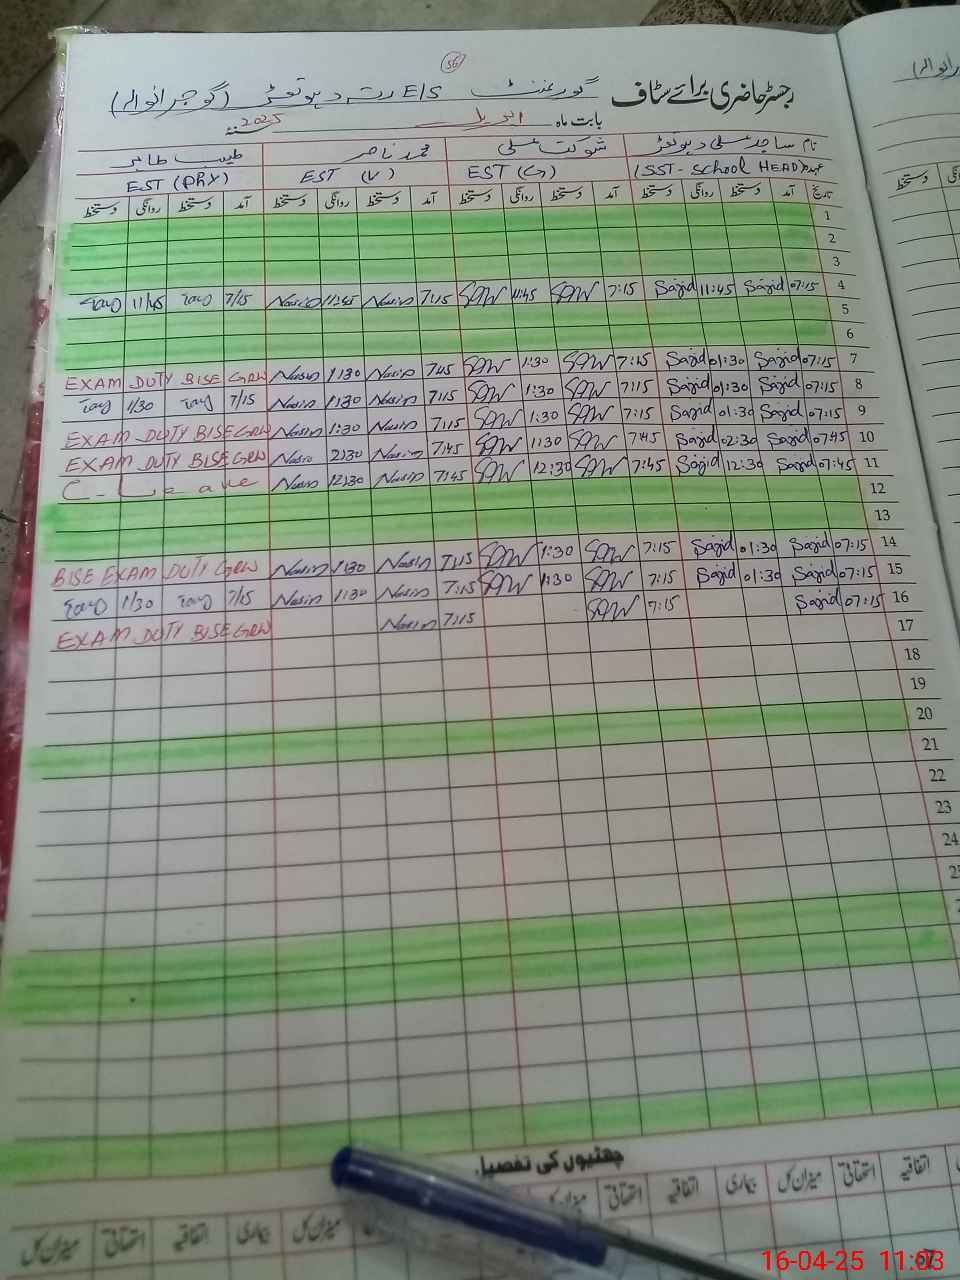 56
رجسٹر حاضری برائے سٹاف گورنمنٹ E/S رتہ دہوتھڑ (گوجرانوالہ)
بابت ماہ اپریل 2025
نام ساجد علی دہوتھڑ شوکت علی محمد ناصر طیب طاہر
عہدہ (SST-School HEAD) EST (G) EST (V) EST (PHY)
تاریخ آمد دستخط روانگی دستخط آمد دستخط روانگی دستخط آمد دستخط روانگی دستخط آمد دستخط روانگی دستخط
1
2
3
4 07:15 Sajid 11:45 Sajid 7:15 SAW 11:45 SAW 7:15 Nasir 11:45 Nasir 7/15 11/45
5
6
7 07:15 Sajid 01:30 Sajid 7:15 SAW 1:30 SAW 7:45 Nasir 1:30 Nasir EXAM DUTY BISE GRW
8 07:15 Sajid 01:30 Sajid 7:15 SAW 1:30 SAW 7:15 Nasir 1:30 Nasir 7/15 1/30
9 07:15 Sajid 01:30 Sajid 7:15 SAW 1:30 SAW 7:15 Nasir 1:30 Nasir EXAM DUTY BISE GRW
10 07:45 Sajid 02:30 Sajid 7:45 SAW 1:30 SAW 7:45 Nasir 2:30 Nasir EXAM DUTY BISE GRW
11 07:45 Sajid 12:30 Sajid 7:45 SAW 12:30 SAW 7:45 Nasir 12:30 Nasir C-Leave
12
13
14 07:15 Sajid 01:30 Sajid 7:15 SAW 1:30 SAW 7:15 Nasir 1:30 Nasir BISE EXAM DUTY GRW
15 07:15 Sajid 01:30 Sajid 7:15 SAW 1:30 SAW 7:15 Nasir 1:30 Nasir 7/15 1/30
16 07:15 Sajid 7:15 SAW 7:15 Nasir EXAM DUTY BISE GRW
17
18
19
20
21
22
23
24
چھٹیوں کی تفصیل
اتفاقیہ استحقاقی میزان کل بیماری اتفاقیہ استحقاقی میزان کل میزان کل بیماری اتفاقیہ استحقاقی میزان کل
16-04-25 11:03